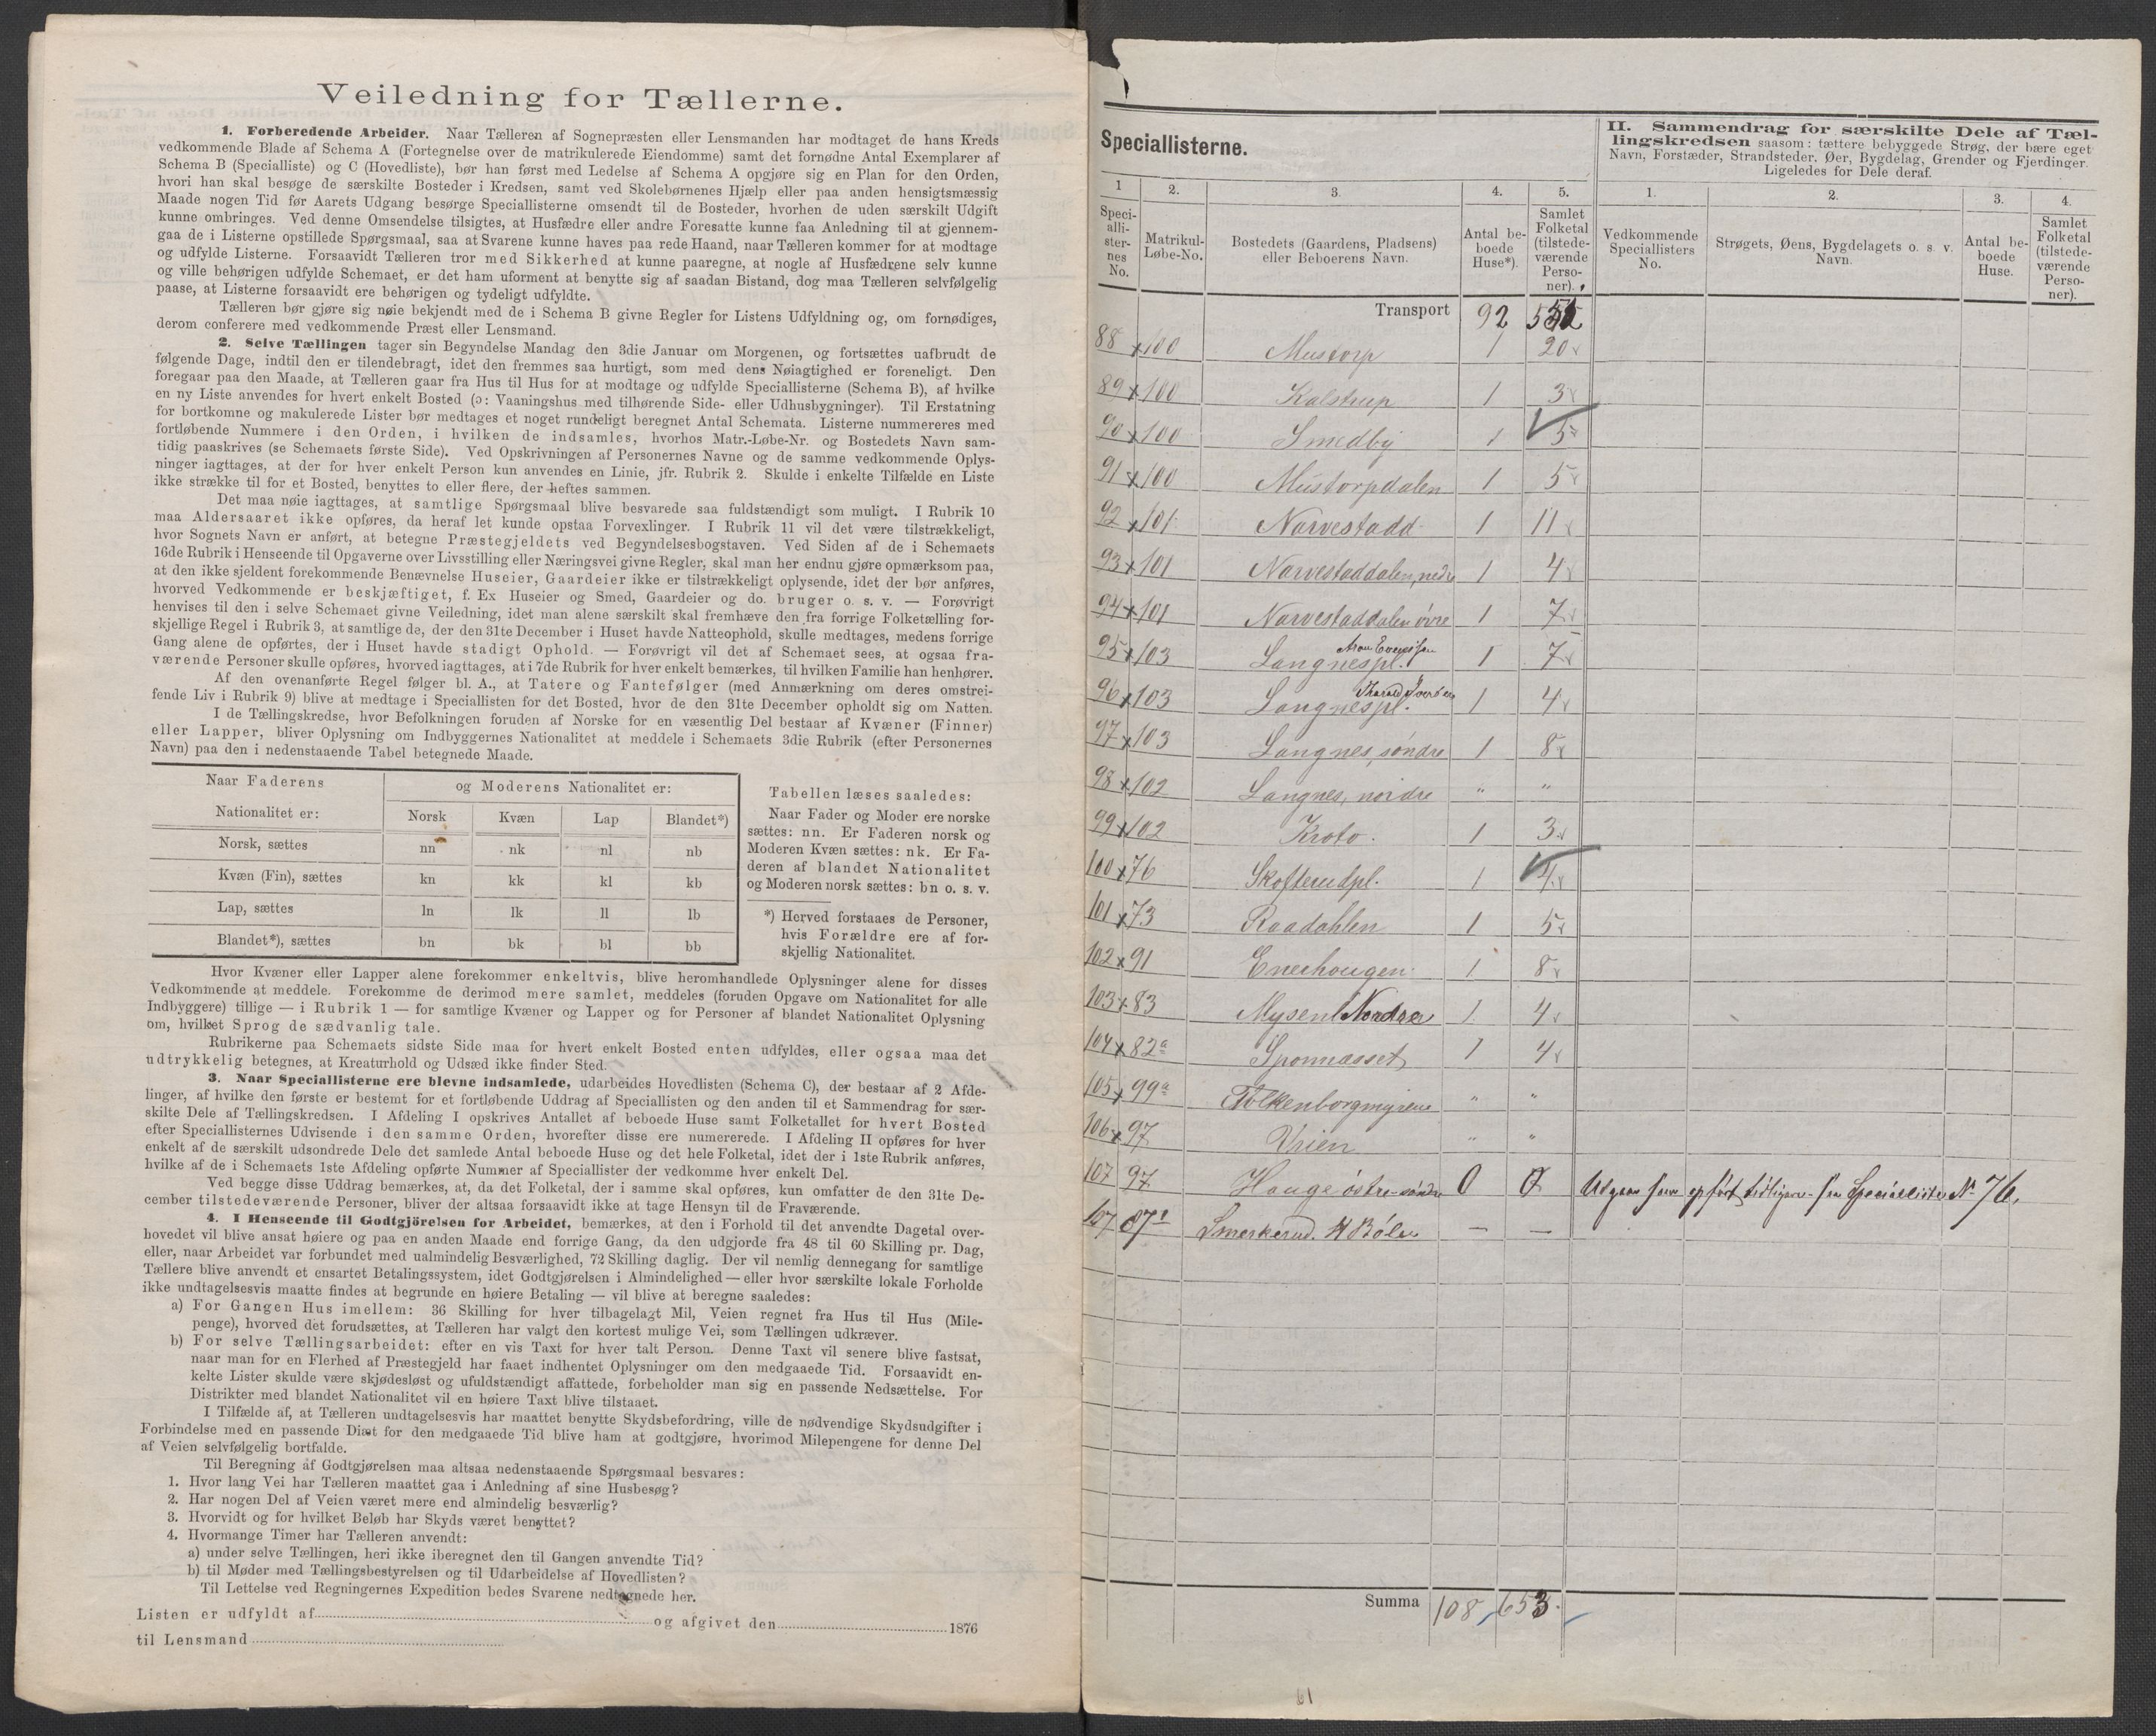 Veiledning for Tællerne.
1. Forberedende Arbeider. Naar Tælleren af Sognepræsten eller Lensmanden har modtaget de hans Kreds
vedkommende Blade af Schema A (Fortegnelse over de matrikulerede Eiendomme) samt det fornødne Antal Exemplarer af
Schema B (Specialliste) og C (Hovedliste), bør han først med Ledelse af Schema A opgjøre sig en Plan for den Orden,
hvori han skal besøge de særskilte Bosteder i Kredsen, samt ved Skolebørnenes Hjælp eller paa anden hensigtsmæssig
Maade nogen Tid før Aarets Udgang besørge Speciallisterne omsendt til de Bosteder, hvorhen de uden særskilt Udgift
kunne ombringes. Ved denne Omsendelse tilsigtes, at Husfædre eller andre Foresatte kunne faa Anledning til at gjennem-
gaa de i Listerne opstillede Spørgsmaal, saa at Svarene kunne haves paa rede Haand, naar Tælleren kommer for at modtage
og udfylde Listerne. Forsaavidt Tælleren tror med Sikkerhed at kunne paaregne, at nogle af Husfædrene selv kunne
og ville behørigen udfylde Schemaet, er det ham uforment at benytte sig af saadan Bistand, dog maa Tælleren selvfølgelig
paase, at Listerne forsaavidt ere behørigen og tydeligt udfyldte.
Tælleren bør gjøre sig nøie bekjendt med de i Schema B givne Regler for Listens Udfyldning og, om fornødiges,
derom conferere med vedkommende Præst eller Lensmand.
2. Selve Tællingen tager sin Begyndelse Mandag den 3die Januar om Morgenen, og fortsættes uafbrudt de
følgende Dage, indtil den er tilendebragt, idet den fremmes saa hurtigt, som med dens Nøiagtighed er foreneligt. Den
foregaar paa den Maade, at Tælleren gaar fra Hus til Hus for at modtage og udfylde Speciallisterne (Schema B), af hvilke
en ny Liste anvendes for hvert enkelt Bosted (ɔ: Vaaningshus med tilhørende Side- eller Udhusbygninger). Til Erstatning
for bortkomne og makulerede Lister bør medtages et noget rundeligt beregnet Antal Schemata. Listerne nummereres med
fortløbende Nummere i den Orden, i hvilken de indsamles, hvorhos Matr.-Løbe-Nr. og Bostedets Navn sam-
tidig paaskrives (se Schemaets første Side). Ved Opskrivningen af Personernes Navne og de samme vedkommende Oplys-
ninger iagttages, at der for hver enkelt Person kun anvendes en Linie, jfr. Rubrik 2. Skulde i enkelte Tilfælde en Liste
ikke strække til for et Bosted, benyttes to eller flere, der heftes sammen.
Det maa nøie iagttages, at samtlige Spørgsmaal blive besvarede saa fuldstændigt som muligt. I Rubrik 10
maa Aldersaaret ikke opføres, da heraf let kunde opstaa Forvexlinger. I Rubrik 11 vil det være tilstrækkeligt,
hvor Sognets Navn er anført, at betegne Præstegjeldets ved Begyndelsesbogstaven. Ved Siden af de i Schemaets
16de Rubrik i Henseende til Opgaverne over Livsstilling eller Næringsvei givne Regler, skal man her endnu gjøre opmærksom paa,
at den ikke sjeldent forekommende Benævnelse Huseier, Gaardeier ikke er tilstrækkeligt oplysende, idet der bør anføres,
hvorved Vedkommende er beskjæftiget, f. Ex Huseier og Smed, Gaardeier og do. bruger o. s. v. — Forøvrigt
henvises til den i selve Schemaet givne Veiledning, idet man alene særskilt skal fremhæve den fra forrige Folketælling for-
skjellige Regel i Rubrik 3, at samtlige de, der den 31te December i Huset havde Natteophold, skulle medtages, medens forrige
Gang alene de opførtes, der i Huset havde stadigt Ophold. — Forøvrigt vil det af Schemaet sees, at ogsaa fra-
værende Personer skulle opføres, hvorved iagttages, at i 7de Rubrik for hver enkelt bemærkes, til hvilken Familie han henhører.
Af den ovenanførte Regel følger bl. A., at Tatere og Fantefølger (med Anmærkning om deres omstrei-
fende Liv i Rubrik 9) blive at medtage i Speciallisten for det Bosted, hvor de den 31te December opholdt sig om Natten.
I de Tællingskredse, hvor Befolkningen foruden af Norske for en væsentlig Del bestaar af Kvæner (Finner)
eller Lapper, bliver Oplysning om Indbyggernes Nationalitet at meddele i Schemaets 3die Rubrik (efter Personernes
Navn) paa den i nedenstaaende Tabel betegnede Maade.
Naar Faderens og Moderens Nationalitet er:
Nationalitet er: Norsk Kvæn Lap Blandet*)
Norsk, sættes nn nk nl nb
Kvæn (Fin), sættes kn kk kl kb
Lap, sættes ln lk ll lb
Blandet*), sættes bn bk bl bb
Tabellen læses saaledes:
Naar Fader og Moder ere norske
sættes: nn. Er Faderen norsk og
Moderen Kvæn sættes: nk. Er Fa-
deren af blandet Nationalitet
og Moderen norsk sættes: bn o. s. v.
*) Herved forstaaes de Personer,
hvis Forældre ere af for-
skjellig Nationalitet.
Hvor Kvæner eller Lapper alene forekommer enkeltvis, blive heromhandlede Oplysninger alene for disses
Vedkommende at meddele. Forekomme de derimod mere samlet, meddeles (foruden Opgave om Nationalitet for alle
Indbyggere) tillige — i Rubrik 1 — for samtlige Kvæner og Lapper og for Personer af blandet Nationalitet Oplysning
om, hvilket Sprog de sædvanlig tale.
Rubrikerne paa Schemaets sidste Side maa for hvert enkelt Bosted enten udfyldes, eller ogsaa maa det
udtrykkelig betegnes, at Kreaturhold og Udsæd ikke finder Sted.
3. Naar Speciallisterne ere blevne indsamlede, udarbeides Hovedlisten (Schema C), der bestaar af 2 Afde-
linger, af hvilke den første er bestemt for et fortløbende Uddrag af Speciallisten og den anden til et Sammendrag for sær-
skilte Dele af Tællingskredsen. I Afdeling I opskrives Antallet af beboede Huse samt Folketallet for hvert Bosted
efter Speciallisternes Udvisende i den samme Orden, hvorefter disse ere numererede. I Afdeling II opføres for hver
enkelt af de særskilt udsondrede Dele det samlede Antal beboede Huse og det hele Folketal, idet der i 1ste Rubrik anføres,
hvilke af de i Schemaets 1ste Afdeling opførte Nummer af Speciallister der vedkomme hver enkelt Del.
Ved begge disse Uddrag bemærkes, at, da det Folketal, der i samme skal opføres, kun omfatter de den 31te De-
cember tilstedeværende Personer, bliver der altsaa forsaavidt ikke at tage Hensyn til de Fraværende.
4. I Henseende til Godtgjörelsen for Arbeidet, bemærkes, at den i Forhold til det anvendte Dagetal over-
hovedet vil blive ansat høiere og paa en anden Maade end forrige Gang, da den udgjorde fra 48 til 60 Skilling pr. Dag,
eller, naar Arbeidet var forbundet med ualmindelig Besværlighed, 72 Skilling daglig. Der vil nemlig dennegang for samtlige
Tællere blive anvendt et ensartet Betalingssystem, idet Godtgjørelsen i Almindelighed — eller hvor særskilte lokale Forholde
ikke undtagelsesvis maatte findes at begrunde en høiere Betaling — vil blive at beregne saaledes:
a) For Gangen Hus imellem: 36 Skilling for hver tilbagelagt Mil, Veien regnet fra Hus til Hus (Mile-
penge), hvorved det forudsættes, at Tælleren har valgt den kortest mulige Vei, som Tællingen udkræver.
b) For selve Tællingsarbeidet: efter en vis Taxt for hver talt Person. Denne Taxt vil senere blive fastsat,
naar man for en Flerhed af Præstegjeld har faaet indhentet Oplysninger om den medgaaede Tid. Forsaavidt en-
kelte Lister skulde være skjødesløst og ufuldstændigt affattede, forbeholder man sig en passende Nedsættelse. For
Distrikter med blandet Nationalitet vil en høiere Taxt blive tilstaaet.
I Tilfælde af, at Tælleren undtagelsesvis har maattet benytte Skydsbefordring, ville de nødvendige Skydsudgifter i
Forbindelse med en passende Diæt for den medgaaede Tid blive ham at godtgjøre, hvorimod Milepengene for denne Del
af Veien selvfølgelig bortfalde.
Til Beregning af Godtgjørelsen maa altsaa nedenstaaende Spørgsmaal besvares:
1. Hvor lang Vei har Tælleren maattet gaa i Anledning af sine Husbesøg?
2. Har nogen Del af Veien været mere end almindelig besværlig?
3. Hvorvidt og for hvilket Beløb har Skyds været benyttet?
4. Hvormange Timer har Tælleren anvendt:
a) under selve Tællingen, heri ikke iberegnet den til Gangen anvendte Tid?
b) til Møder med Tællingsbestyrelsen og til Udarbeidelse af Hovedlisten?
Til Lettelse ved Regningernes Expedition bedes Svarene nedtegnede her.
Listen er udfyldt af og afgivet den 1876
til Lensmand
Speciallisterne.
II. Sammendrag for særskilte Dele af Tæl-
lingskredsen saasom: tættere bebyggede Strøg, der bære eget
Navn, Forstæder, Strandsteder, Øer, Bygdelag, Grender og Fjerdinger.
Ligeledes for Dele deraf.
1 2. 3. 4. 5. 1. 2. 3. 4.
Speci-
alli-
ster-
nes
No.
Matrikul-
Løbe-No.
Bostedets (Gaardens, Pladsens)
eller Beboerens Navn.
Antal be-
boede
Huse*).
Samlet
Folketal
(tilstede-
værende
Perso-
ner).
Vedkommende
Speciallisters
No.
Strøgets, Øens, Bygdelagets o. s. v.
Navn.
Antal be-
boede
Huse.
Samlet
Folketal
(tilstede-
værende
Perso-
ner).
Transport 92
88 x 100 Mustorp 1 20
89 x 100 Kalstrup 1 3
90 x 100 Smedby 1 5
91 x 100 Mustorpdalen 1 5
92 x 101 Narvestadd 1 11
93 x 101 Narvestaddalen, nedre 1 4
94 x 101 Narvestaddalen øvre 1 7
95 x 103 Langnespl. 1 7
96 x 103 Langnespl. 1 4
97 x 103 Langnes, søndre 1 8
98 x 102 Langnes, nordre " "
99 x 102 Kroto. 1 3
100 x 76 Skofterudpl. 1 4
101 x 73 Raadahlen 1 5
102 x 91 Enerhougen 1 8
103 x 83 Mysen Nordre 1 4
104 x 82a Sponnæsset 1 4
105 x 99a Folkenborgmyrene " "
106 x 97 Vrien " "
107 97 Houge östre-söndre 0 0 Udgaar som opført tidligere Specialliste No 76.
107 87 Smerkerud. Böler — —
Summa 108 653
61